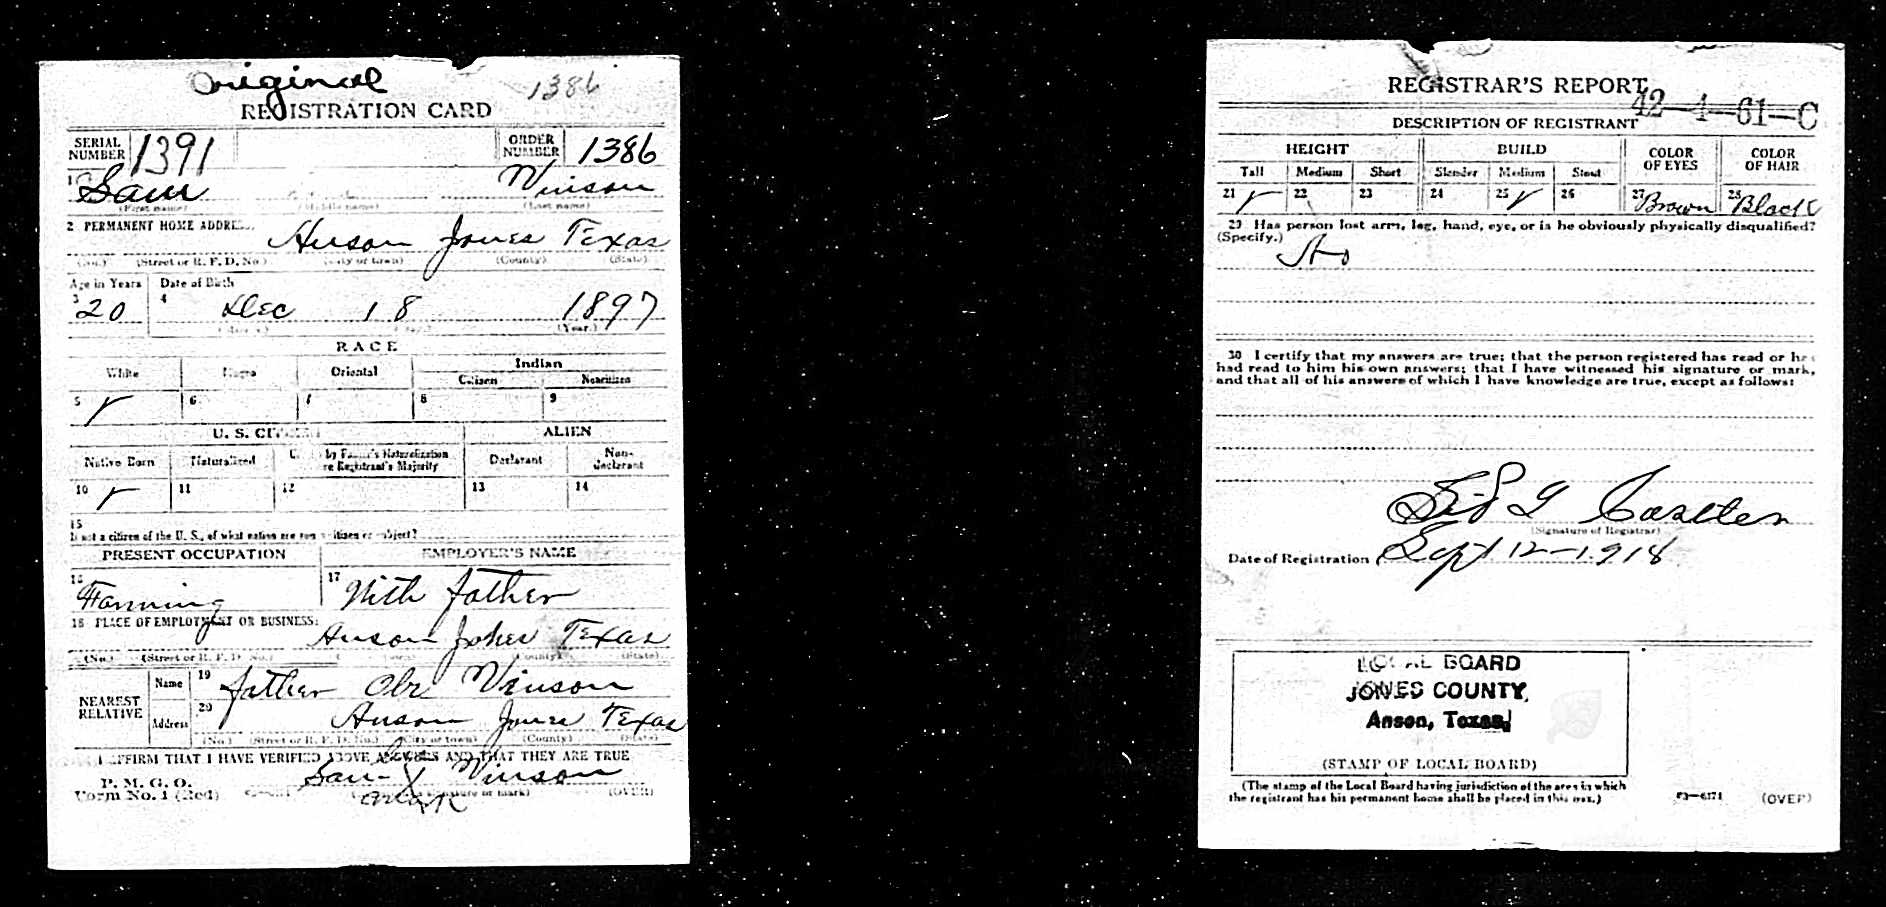 Original
1386
REGISTRATION CARD
SERIAL NUMBER 1391 ORDER NUMBER 1386
1 Sam Vinson
(First name) (Middle name) (Last name)
2 PERMANENT HOME ADDRESS:
Anson Jones Texas
(No.) (Street or R. F. D. No.) (City or town) (County) (State)
Age in Years Date of Birth
3 20 4 Dec 18 1897
(Year.)
RACE
White Negro Oriental Indian
Citizen Noncitizen
5 ✓ 6 7 8 9
U. S. CITIZEN ALIEN
Native Born Naturalized by Father's Naturalization Declarant Non-declarant
re Registrant's Majority
10 ✓ 11 12 13 14
15
If not a citizen of the U. S., of what nation are you a citizen or subject?
PRESENT OCCUPATION EMPLOYER'S NAME
16 Farming 17 With father
18 PLACE OF EMPLOYMENT OR BUSINESS:
Anson Jones Texas
(No.) (Street or R. F. D. No.) (County) (State)
NEAREST RELATIVE Name 19 father Vinson
Address 20 Anson Jones Texas
(No.) (Street or R. F. D. No.) (City or town) (County) (State)
I AFFIRM THAT I HAVE VERIFIED ABOVE ANSWERS AND THAT THEY ARE TRUE
his
P. M. G. O.
Form No. 1 (Red) Sam X Vinson
mark
(signature or mark) (OVER)
REGISTRAR'S REPORT
42-4-61-C
DESCRIPTION OF REGISTRANT
HEIGHT BUILD COLOR OF EYES COLOR OF HAIR
Tall Medium Short Slender Medium Stout
21 ✓ 22 23 24 25 ✓ 26 27 Brown 28 Black
29 Has person lost arm, leg, hand, eye, or is he obviously physically disqualified?
(Specify.) No
30 I certify that my answers are true; that the person registered has read or has
had read to him his own answers; that I have witnessed his signature or mark,
and that all of his answers of which I have knowledge are true, except as follows:
Sid G
(Signature of Registrar)
Date of Registration Sept 12-1918
LOCAL BOARD
JONES COUNTY,
Anson, Texas,
(STAMP OF LOCAL BOARD)
(The stamp of the Local Board having jurisdiction of the area in which
the registrant has his permanent home shall be placed in this box.)
03-6171 (OVER)